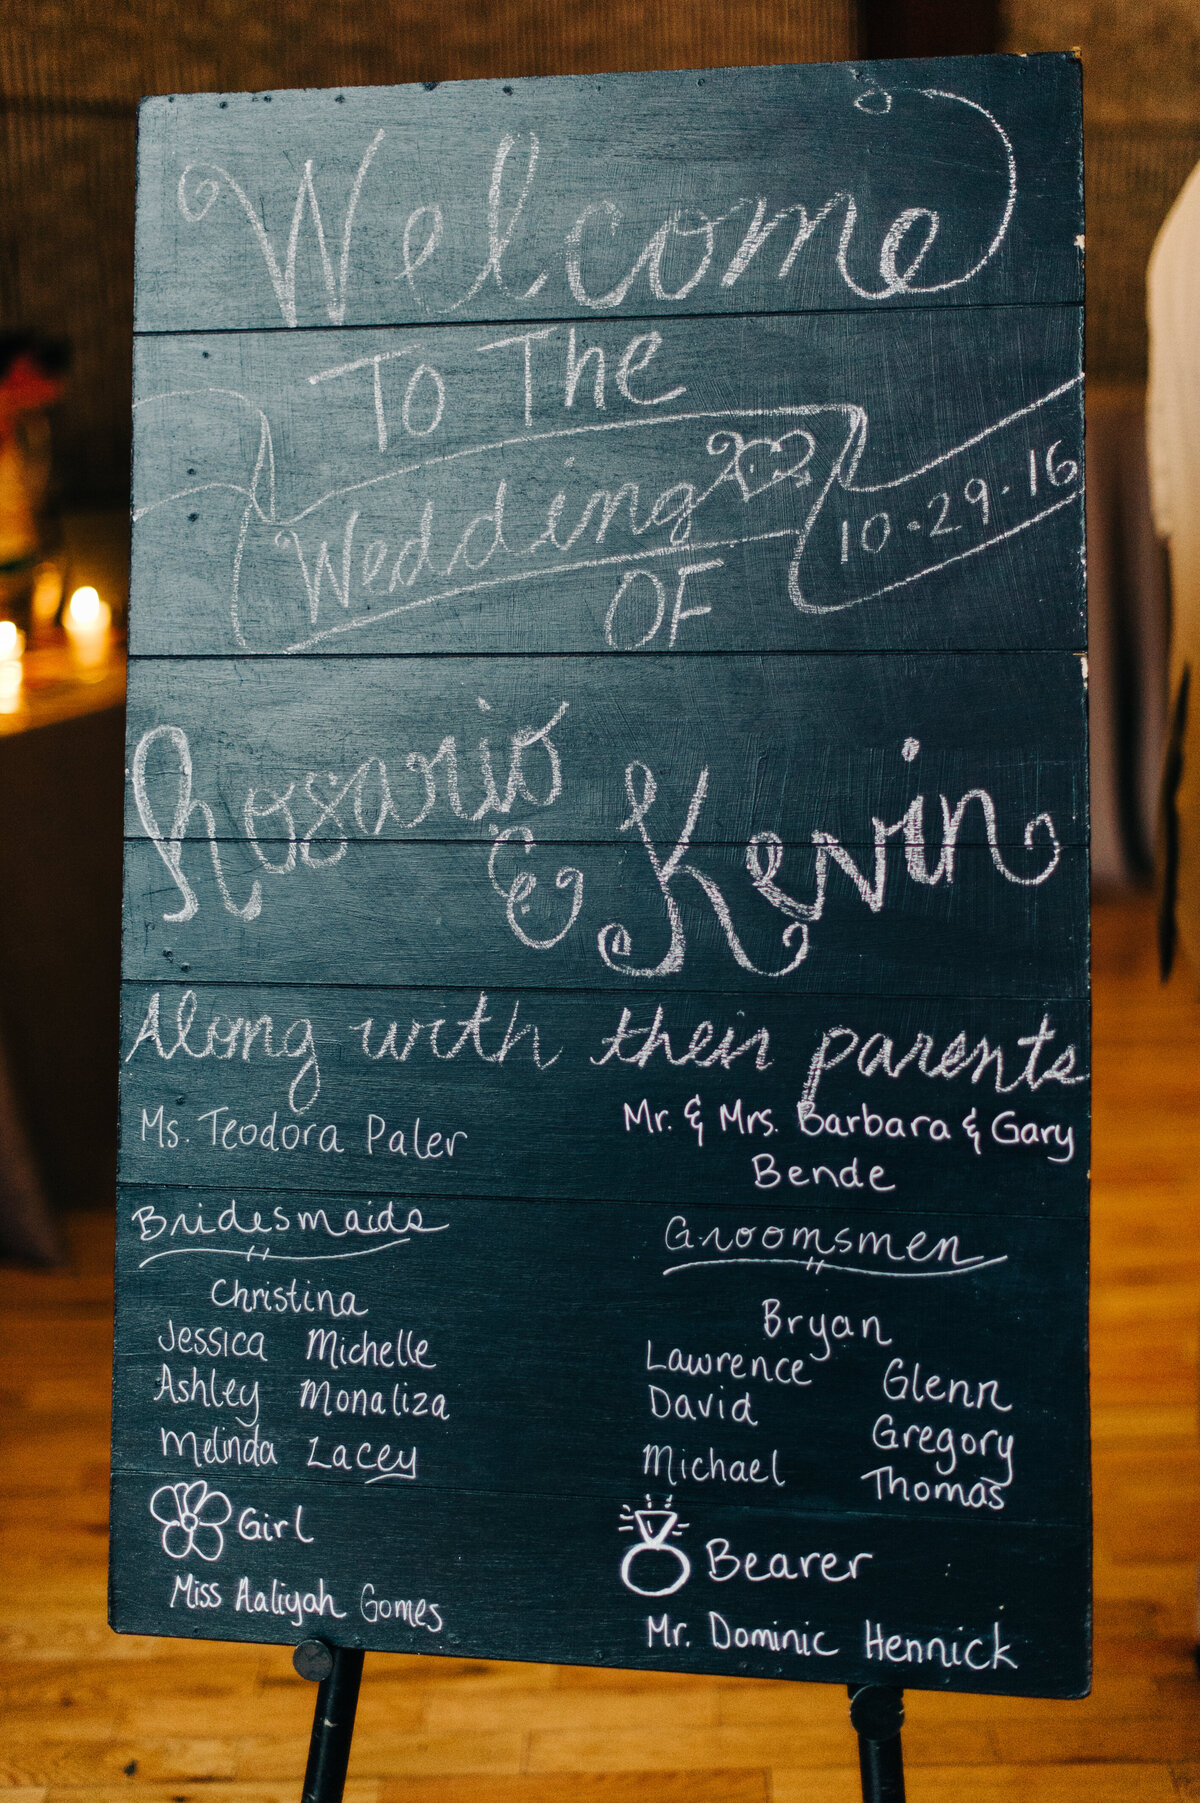 Welcome
To The
Wedding
10.29.16
OF
Rosario
& Kevin
Along with their parents
Ms. Teodora Paler
Mr. & Mrs. Barbara & Gary
Bende
Bridesmaids
Christina
Jessica Michelle
Ashley Monaliza
Melinda Lacey
Groomsmen
Bryan
Lawrence Glenn
David Gregory
Michael Thomas
Girl
Miss Aaliyah Gomes
Bearer
Mr. Dominic Hennick